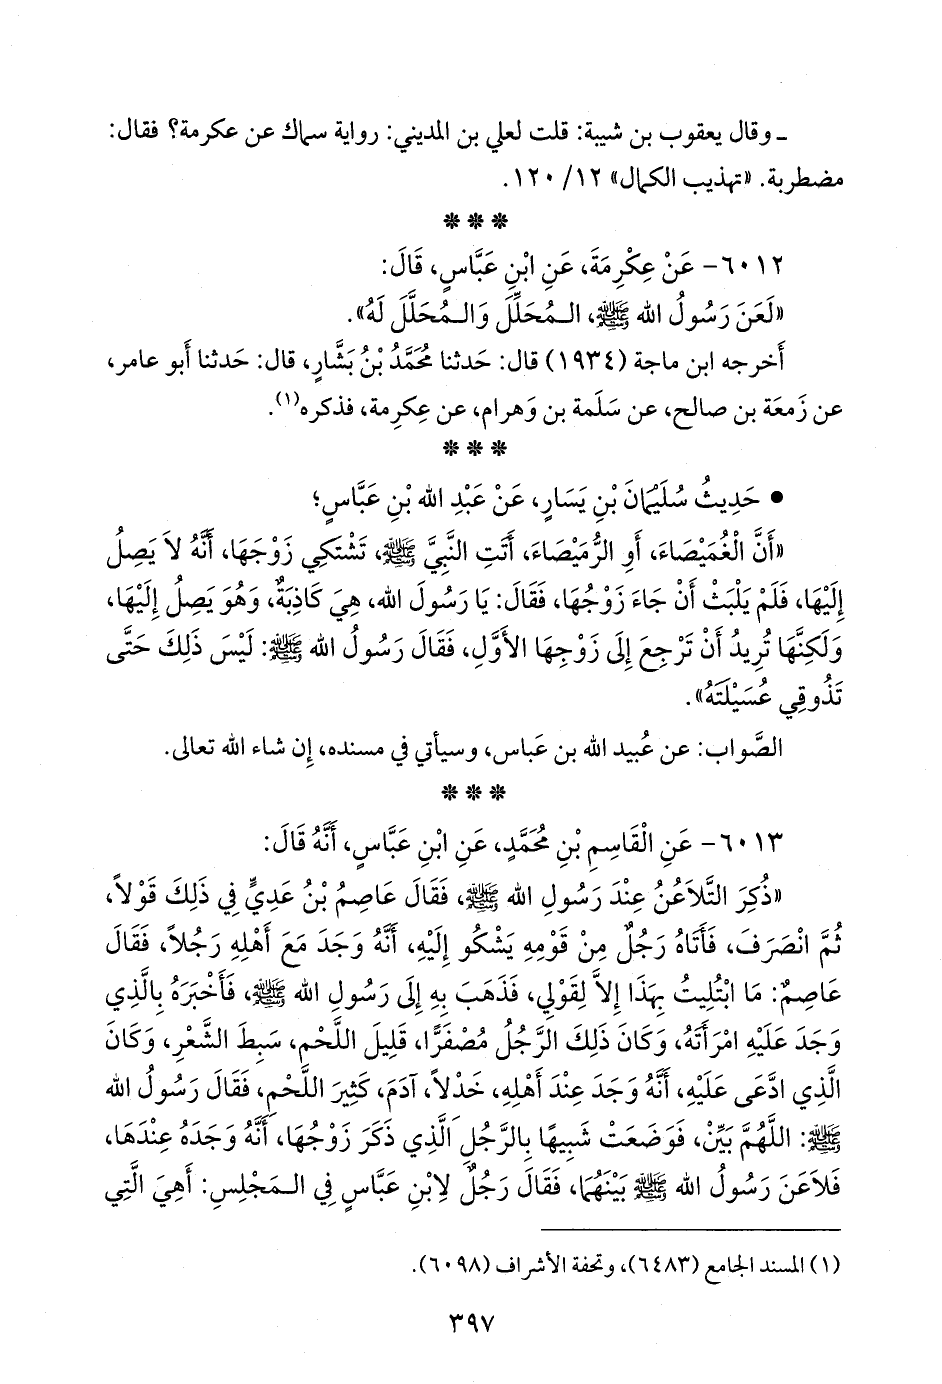 ـ وقال يعقوب بن شيبة: قلت لعلي بن المديني: رواية سماك عن عكرمة؟ فقال:
مضطربة. «تهذيب الكمال» ١٢/ ١٢٠.
* * *
٦٠١٢- عَنْ عِكْرِمَةَ، عَنِ ابْنِ عَبَّاسٍ، قَالَ:
«لَعَنَ رَسُولُ الله ﷺ، الـمُحَلِّلَ وَالـمُحَلَّلَ لَهُ».
أَخرجه ابن ماجة (١٩٣٤) قال: حَدثنا مُحَمَّدُ بْنُ بَشَّارٍ، قال: حَدثنا أَبو عامر،
عن زَمعَة بن صالح، عن سَلَمة بن وَهرام، عن عِكرِمة، فذكره(١).
* * *
• حَدِيثُ سُلَيْمَانَ بْنِ يَسَارٍ، عَنْ عَبْدِ الله بْنِ عَبَّاسٍ؛
«أَنَّ الْغُمَيْصَاءَ، أَوِ الرُّمَيْصَاءَ، أَتَتِ النَّبِيَّ ﷺ، تَشْتَكِي زَوْجَهَا، أَنَّهُ لاَ يَصِلُ
إِلَيْهَا، فَلَمْ يَلْبَثْ أَنْ جَاءَ زَوْجُهَا، فَقَالَ: يَا رَسُولَ الله، هِيَ كَاذِبَةٌ، وَهُوَ يَصِلُ إِلَيْهَا،
وَلَكِنَّهَا تُرِيدُ أَنْ تَرْجِعَ إِلَى زَوْجِهَا الأَوَّلِ، فَقَالَ رَسُولُ الله ﷺ: لَيْسَ ذَلِكَ حَتَّى
تَذُوقِي عُسَيْلَتَهُ».
الصَّواب: عن عُبيد الله بن عَباس، وسيأتي في مسنده، إِن شاء الله تعالى.
* * *
٦٠١٣- عَنِ الْقَاسِمِ بْنِ مُحَمَّدٍ، عَنِ ابْنِ عَبَّاسٍ، أَنَّهُ قَالَ:
«ذُكِرَ التَّلاَعُنُ عِنْدَ رَسُولِ الله ﷺ، فَقَالَ عَاصِمُ بْنُ عَدِيٍّ فِي ذَلِكَ قَوْلاً،
ثُمَّ انْصَرَفَ، فَأَتَاهُ رَجُلٌ مِنْ قَوْمِهِ يَشْكُو إِلَيْهِ، أَنَّهُ وَجَدَ مَعَ أَهْلِهِ رَجُلاً، فَقَالَ
عَاصِمٌ: مَا ابْتُلِيتُ بِهَذَا إِلاَّ لِقَوْلِي، فَذَهَبَ بِهِ إِلَى رَسُولِ الله ﷺ، فَأَخْبَرَهُ بِالَّذِي
وَجَدَ عَلَيْهِ امْرَأَتَهُ، وَكَانَ ذَلِكَ الرَّجُلُ مُصْفَرًّا، قَلِيلَ اللَّحْمِ، سَبِطَ الشَّعْرِ، وَكَانَ
الَّذِي ادَّعَى عَلَيْهِ، أَنَّهُ وَجَدَ عِنْدَ أَهْلِهِ، خَدْلاً، آدَمَ، كَثِيرَ اللَّحْمِ، فَقَالَ رَسُولُ الله
ﷺ: اللَّهُمَّ بَيِّنْ، فَوَضَعَتْ شَبِيهًا بِالرَّجُلِ الَّذِي ذَكَرَ زَوْجُهَا، أَنَّهُ وَجَدَهُ عِنْدَهَا،
فَلاَعَنَ رَسُولُ الله ﷺ بَيْنَهُمَا، فَقَالَ رَجُلٌ لِابْنِ عَبَّاسٍ فِي الـمَجْلِسِ: أَهِيَ الَّتِي
(١) المسند الجامع (٦٤٨٣)، وتحفة الأشراف (٦٠٩٨).
٣٩٧